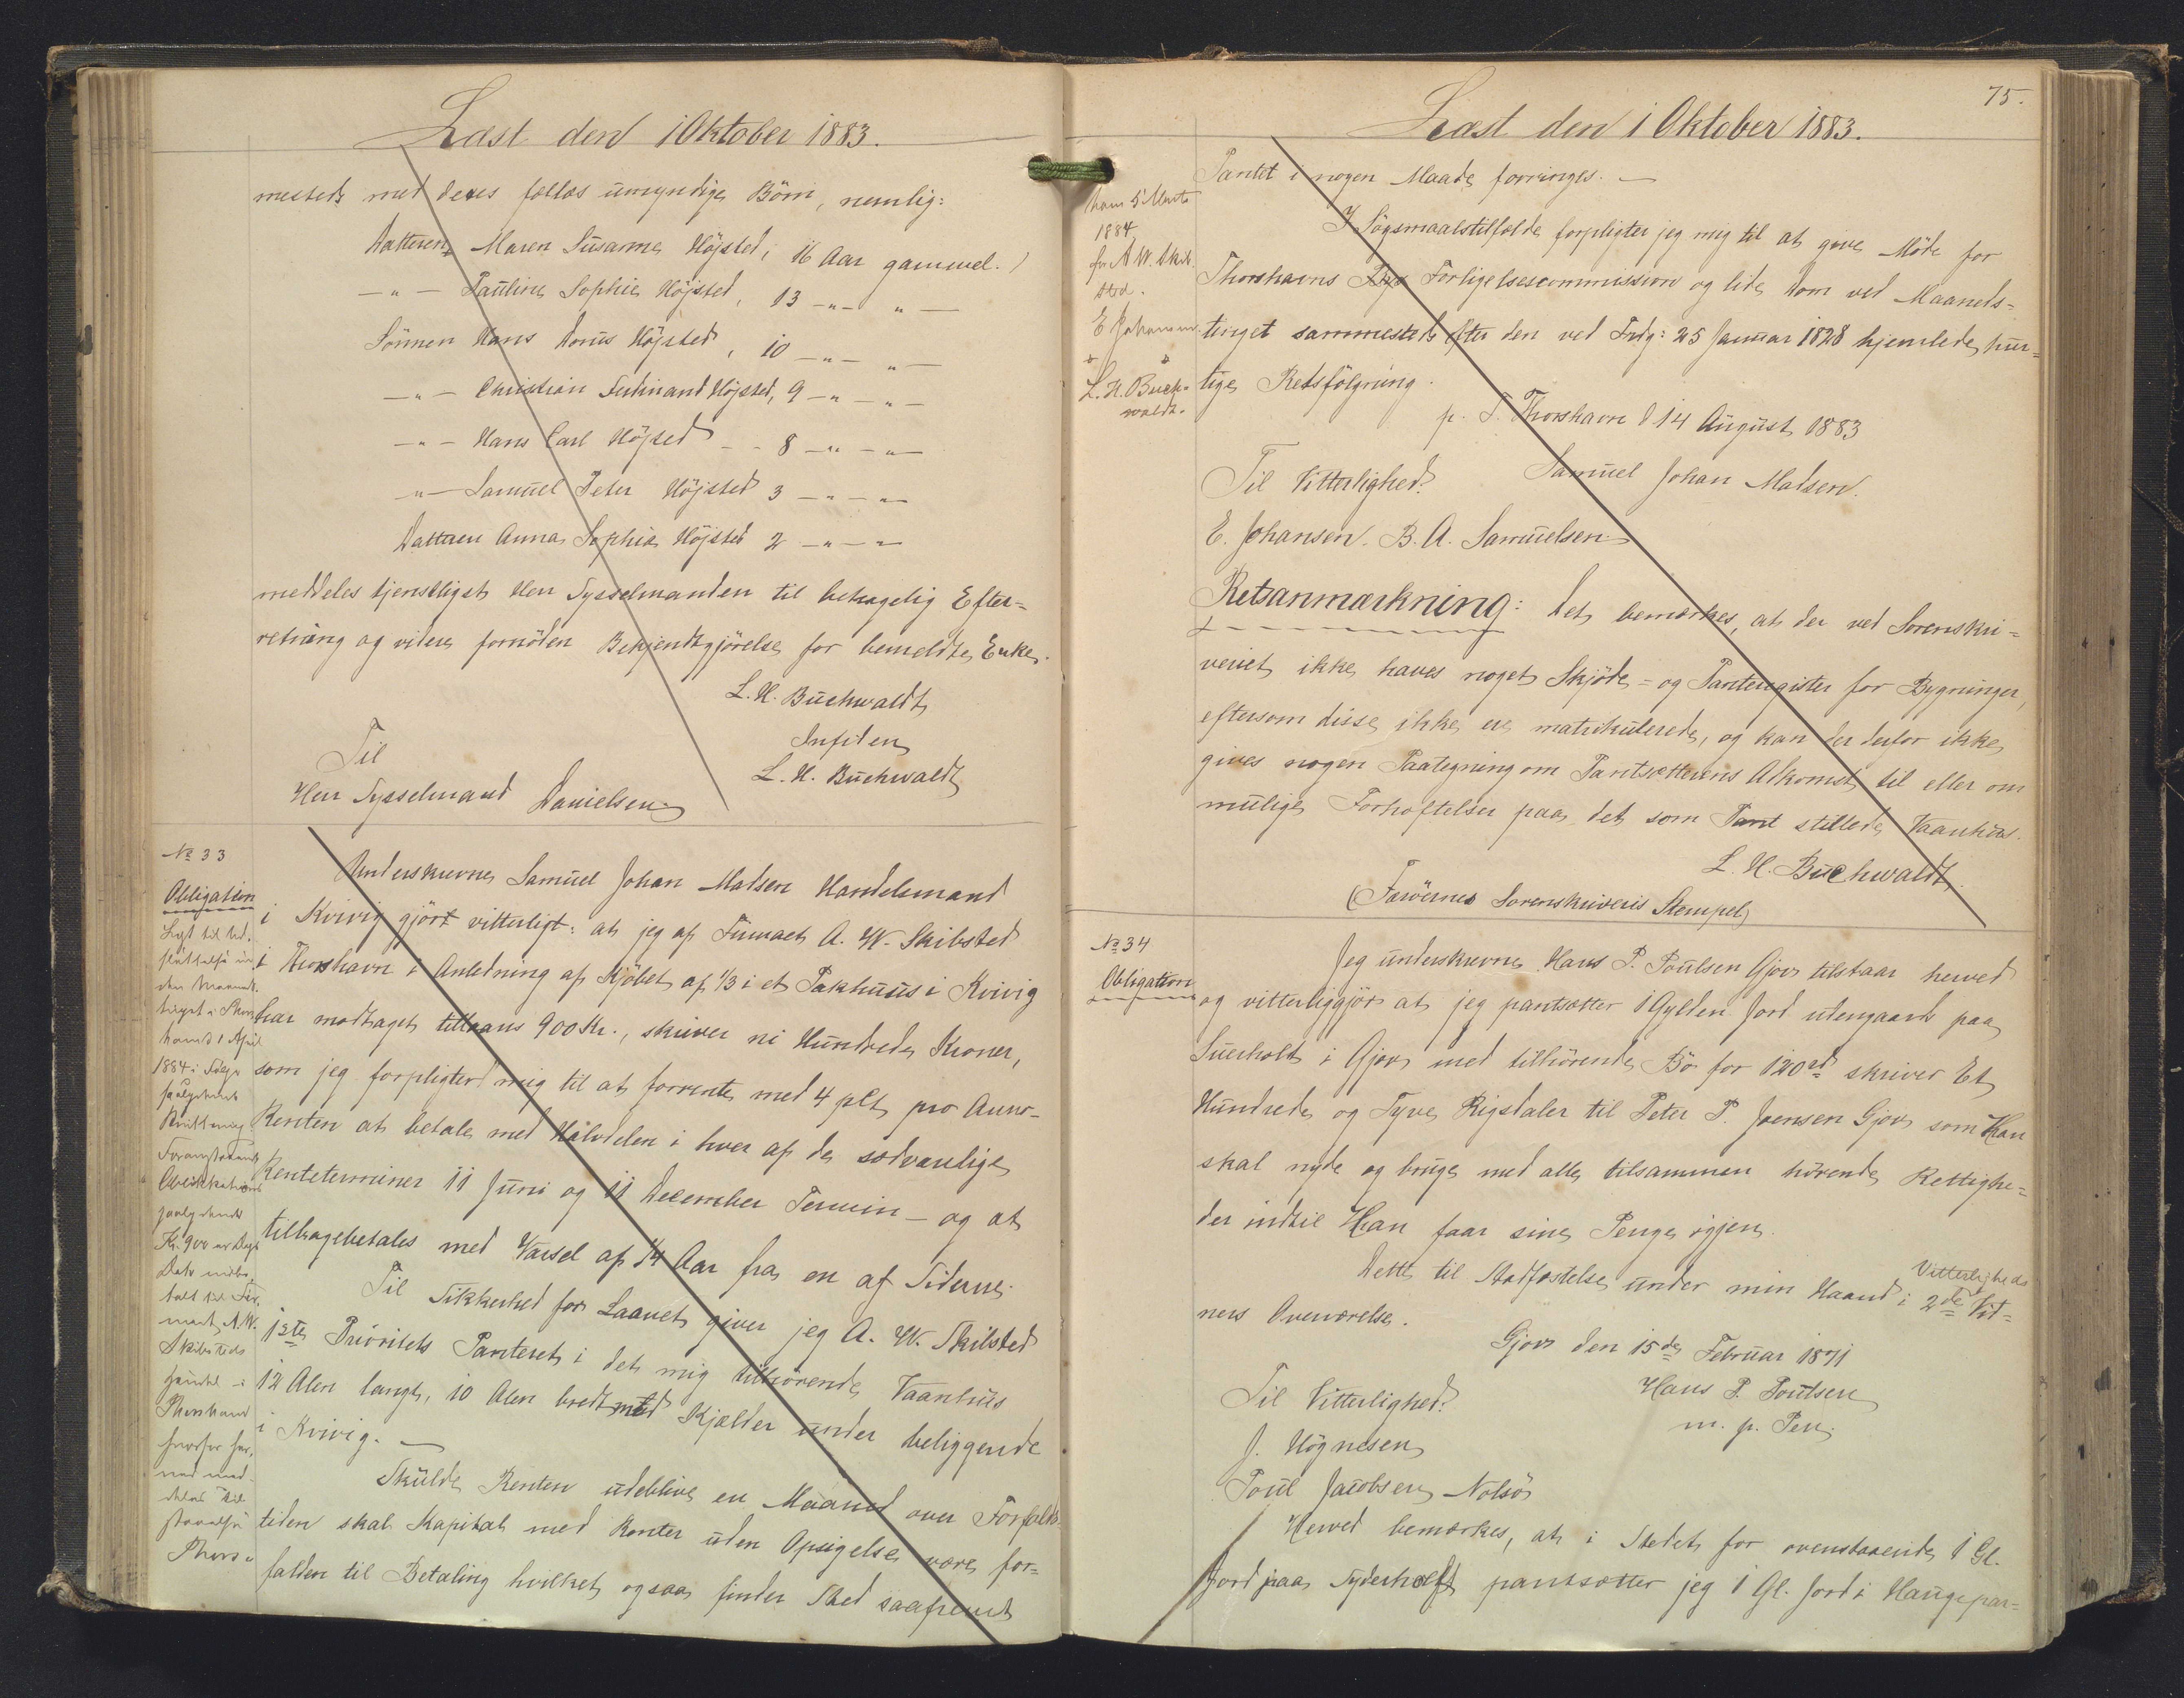 Læst den 1 Oktober 1883.
mesteds med deres fælles umyndige Börn, nemlig:
Datteren Maren Susanne Höjsted, 16 Aar gammel.
—"— Pauline Sophie Höjsted, 13 —"— " —
Sönnen Hans Dorius Höjsted, 10 —"— " —
—"— Christian Ferdinand Höjsted, 9 —"— "—
—"— Hans Carl Höjsted — 8 —"— "—
—"— Samuel Peter Höjsted 3 —"— "—
Datteren Anna Sophie Höjsted 2 —"— "—
meddeles tjenstligst Herr Sysselmanden til behagelig Efter=
retning og videre fornöden Bekjendtgjörelse for bemeldte Enke.
L. H. Buchwaldt
In fidem
L. H. Buchwaldt
Til
Herr Sysselmand Danielsen
№ 33
Obligation
Lyst til Ud-
slettelse in-
den Maaneds-
tinget i Thors
havn d 1 April
1884 i Følge
saalydende
Kvittering
Foranstaaende
Obligation
paalydende
Kr. 900 er Dags
Dato indbe-
talt til Fir-
maet A. W.
Skibsteds
Handel i
Thorshavn
hvorfor her-
ved med-
deles Til
staaelse
Thors=
Underskrevne Samuel Johan Madsen Handelsmand
i Kvivig gjört vitterligt: at jeg af Firmaet A. W. Skibsted
i Thorshavn i Anledning af Kjöbet af 1/3 i et Pakhuus i Kvivig
har modtaget tillaans 900 Kr., skriver ni Hundrede Kroner,
som jeg forpligter mig til at forrente med 4 pCt pro Anno-
Renten at betale med Halvdelen i hver af de sædvanlige
Renteterminer 11 Juni og 11 December Termin — og at
tilbagebetales med Varsel af 1/4 Aar fra en af Siderne.
Til Sikkerhed for Laanet giver jeg A. W. Skibsted
1ste Prioritets Panteret i det mig tilhörende Vaanhus
12 Alen langt, 10 Alen bredt med Kjælder under beliggende
i Kvivig. —
Skulde Renten udeblive en Maaned over Forfalds-
tiden skal Kapital med Renter uden Opsigelse være for=
falden til Betaling hvilket ogsaa finder Sted saafremt
75.
Læst den 1 Oktober 1883.
havn 5 Marts
1884.
for A W. Skib-
sted.
E Johansen
L. H. Buch=
waldt.
Pantet i nogen Maade forringes. —
I Sögsmaalstilfælde forpligter jeg mig til at give Möde for
Thorshavns Forligelsescommission og lide Dom ved Maaneds=
tinget sammesteds efter den ved Frdg: 25 Januar 1828 hjemlede hur=
tige Retsfölgning.
p. T. Thorshavn d 14 August 1883
Samuel Johan Madsen.
Til Vitterlighed:
E. Johansen. B. A. Samuelsen
Retsanmærkning: Det bemærkes, at der ved Sorenskri=
veriet ikke haves noget Skjöde= og Panteregister for Bygninger,
eftersom disse ikke ere matrikulerede, og kan der derfor ikke
gives nogen Paategning om Pantsætterens Adkomst til eller om
mulige Forhæftelser paa det som Pant stillede Vaanhus.
L. H. Buchwaldt.
(Færöernes Sorenskriveris Stempel)
№ 34
Obligation
Jeg underskrevne Hans P. Poulsen Gjov tilstaar herved
og vitterliggjör at jeg pantsætter 1 Gylden Jord utengaards paa
Suerholt i Gjov med tilhörende Bö for 120 rd skriver Et
Hundrede og Tyve Rigsdaler til Peter P. Joensen Gjov som Han
skal nyde og bruge med alle tilsammen hörende Rettighe=
der indtil Han faar sine Penge igjen.
Dette til Stadfæstelse under min Haand i 2de Vitterligheds Vit=
ners Overværelse.
Gjov den 15de Februar 1871
Hans P. Poulsen
m. p. Pen.
Til Vitterlighed:
J. Högnesen
Poul Jacobsen Nolsö
Herved bemærkes, at i Stedet for ovenstaaende 1 Gl.
Jord paa Syderholt pantsætter jeg 1 Gl. Jord i Haugepar=